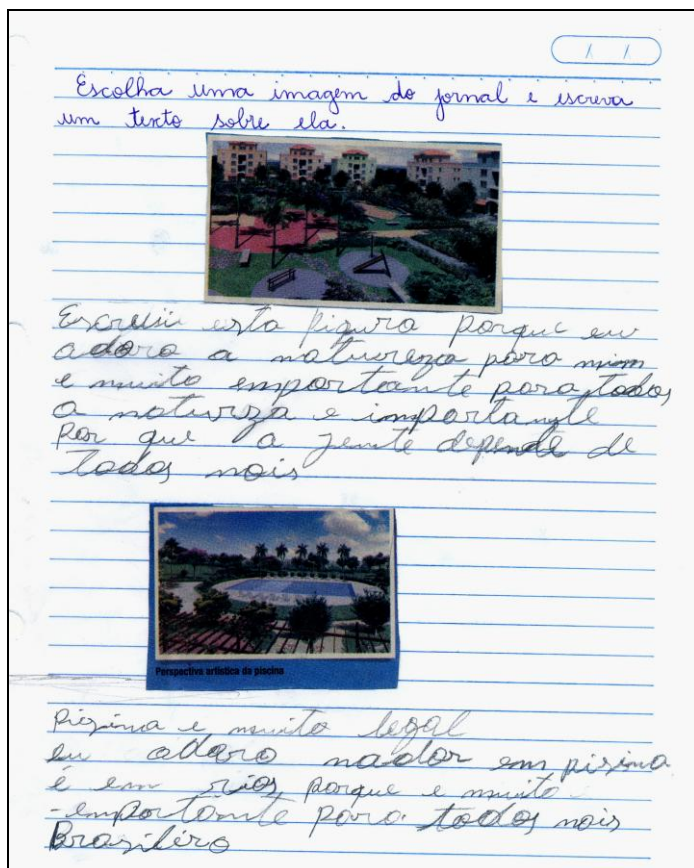 Escolha uma imagem do jornal e escreva
um texto sobre ela.
Escrusii esta figura porque eu
adoro a natureza para mim
e muito emportante para todos
a naturza e importante
Por que a jente depende de
todos nois
Perspectiva artística da piscina
Pizina e muito legal
eu adoro nador em pisina
é em rios porque e muito
-emportante para todos nois
Brasiléro